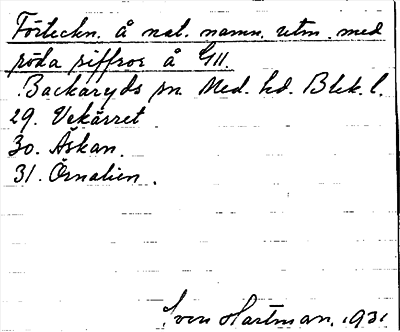 Förteckn. å nat. namn. utm. med
röda siffror å GII.
Backaryds sn Med. hd. Blek. l.
29. Vekärret
30. Åskan.
31. Örnalien.
Sven Hartman, 1931